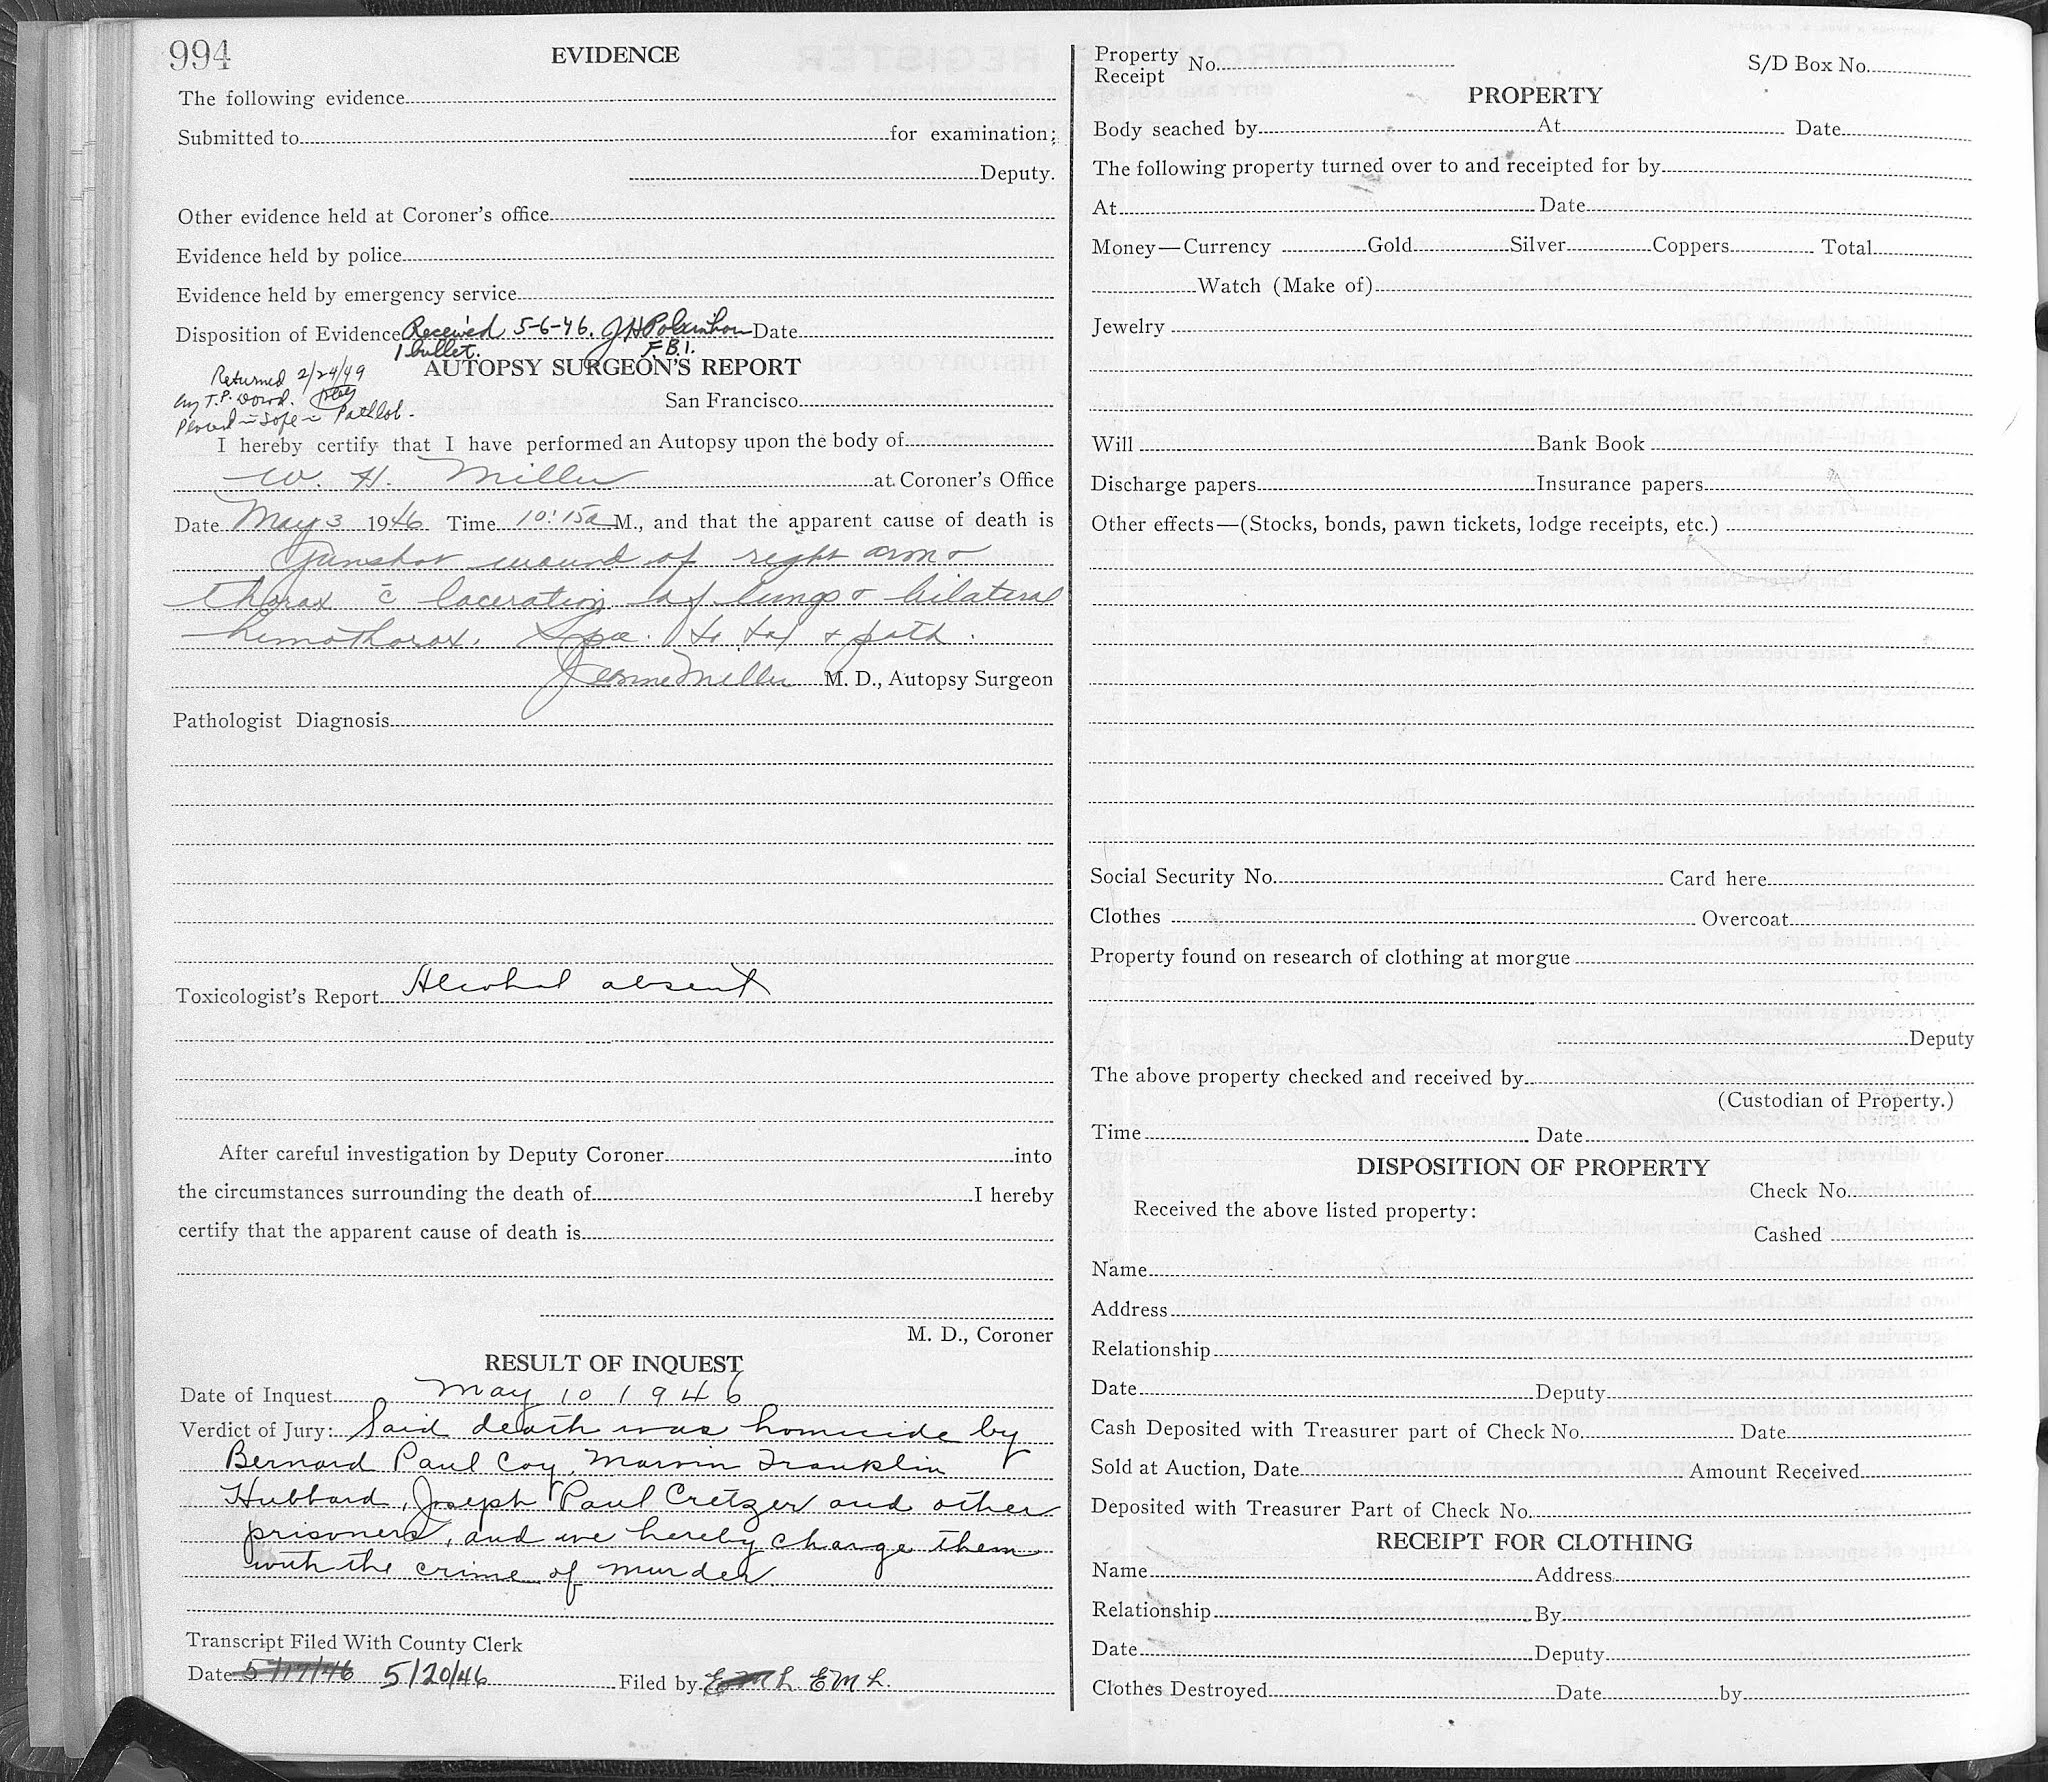 994
EVIDENCE
The following evidence
Submitted to for examination;
Deputy.
Other evidence held at Coroner's office
Evidence held by police
Evidence held by emergency service
Disposition of Evidence Received 5-6-46. J H Date
1 bullet. F.B.I.
AUTOPSY SURGEON'S REPORT
Returned 2/24/49
by T.P. Dowd.
Placed in safe in Pathlab.
San Francisco
I hereby certify that I have performed an Autopsy upon the body of
W. H. Miller at Coroner's Office
Date May 3 1946 Time 10:15a M., and that the apparent cause of death is
Gunshot wound of right arm &
thorax c̄ laceration of lungs & bilateral
hemothorax. Spec. to tox & path.
Jeanne Miller M. D., Autopsy Surgeon
Pathologist Diagnosis
Toxicologist's Report Alcohol absent
After careful investigation by Deputy Coroner into
the circumstances surrounding the death of I hereby
certify that the apparent cause of death is
M. D., Coroner
RESULT OF INQUEST
Date of Inquest May 10 1946
Verdict of Jury: Said death was homicide by
Bernard Paul Coy, Marvin Franklin
Hubbard, Joseph Paul Cretzer and other
prisoners, and we hereby charge them
with the crime of murder.
Transcript Filed With County Clerk
Date 5/17/46 5/20/46 Filed by EML EML.
Property
Receipt No. S/D Box No.
PROPERTY
Body seached by At Date
The following property turned over to and receipted for by
At Date
Money—Currency Gold Silver Coppers Total
Watch (Make of)
Jewelry
Will Bank Book
Discharge papers Insurance papers
Other effects—(Stocks, bonds, pawn tickets, lodge receipts, etc.)
Social Security No. Card here
Clothes Overcoat
Property found on research of clothing at morgue
Deputy
The above property checked and received by
(Custodian of Property.)
Time Date
DISPOSITION OF PROPERTY
Check No.
Received the above listed property:
Cashed
Name
Address
Relationship
Date Deputy
Cash Deposited with Treasurer part of Check No. Date
Sold at Auction, Date Amount Received
Deposited with Treasurer Part of Check No.
RECEIPT FOR CLOTHING
Name Address
Relationship By
Date Deputy
Clothes Destroyed Date by